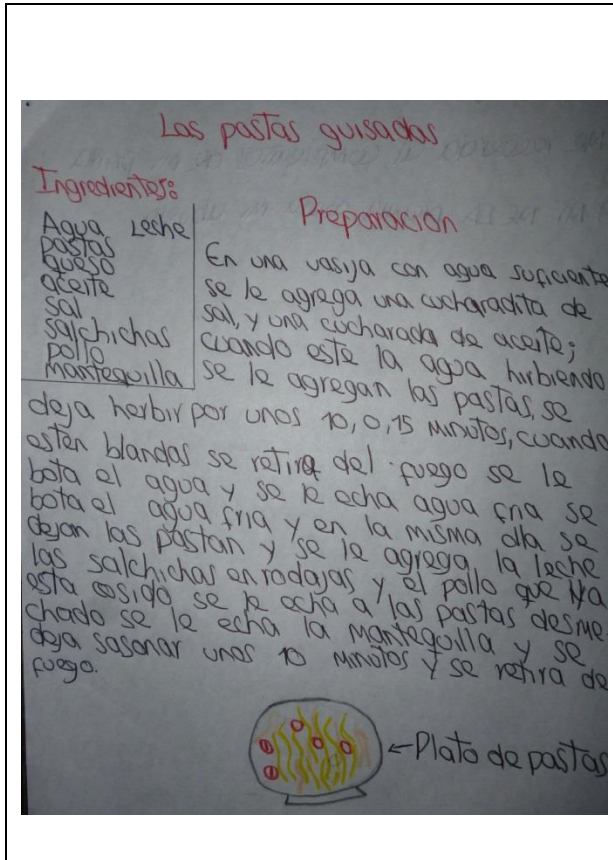 Las pastas guisadas
Ingredientes:
Agua Leche
pastas
queso
aceite
sal
salchichas
pollo
mantequilla
Preparacion
En una vasija con agua suficiente
se le agrega una cucharadita de
sal, y una cucharada de aceite;
cuando este la agua hirbiendo
se le agregan las pastas, se
deja herbir por unos 10, 0, 15 minutos, cuando
esten blandas se retira del fuego se le
bota el agua y se le echa agua fria se
bota el agua fria y en la misma olla se
dejan las pastan y se le agrega la leche
las salchichas en rodajas y el pollo que ya
esta cosido se le echa a las pastas desme
chado se le echa la mantequilla y se
deja sasonar unos 10 minutos y se retira de
fuego.
←Plato de pastas